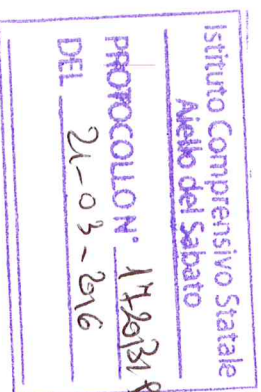 Istituto Comprensivo Statale
Aiello del Sabato
PROTOCOLLO N°
DEL 21-03-2016